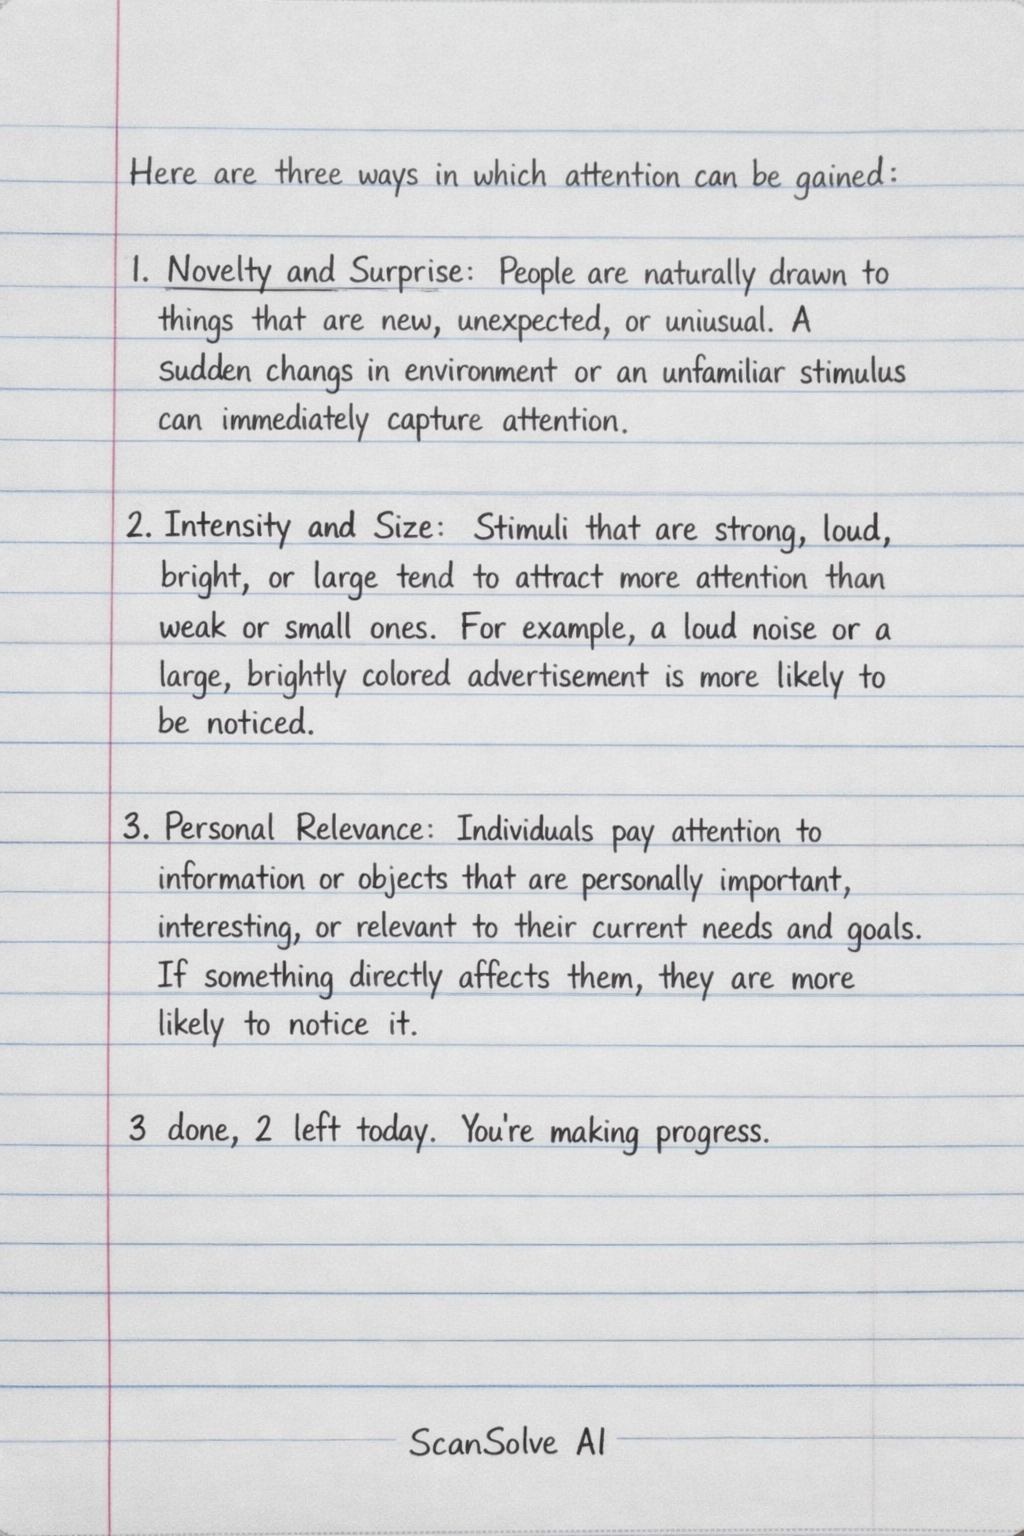 Here are three ways in which attention can be gained:
1. Novelty and Surprise: People are naturally drawn to
things that are new, unexpected, or uniusual. A
sudden changs in environment or an unfamiliar stimulus
can immediately capture attention.
2. Intensity and Size: Stimuli that are strong, loud,
bright, or large tend to attract more attention than
weak or small ones. For example, a loud noise or a
large, brightly colored advertisement is more likely to
be noticed.
3. Personal Relevance: Individuals pay attention to
information or objects that are personally important,
interesting, or relevant to their current needs and goals.
If something directly affects them, they are more
likely to notice it.
3 done, 2 left today. You're making progress.
ScanSolve AI